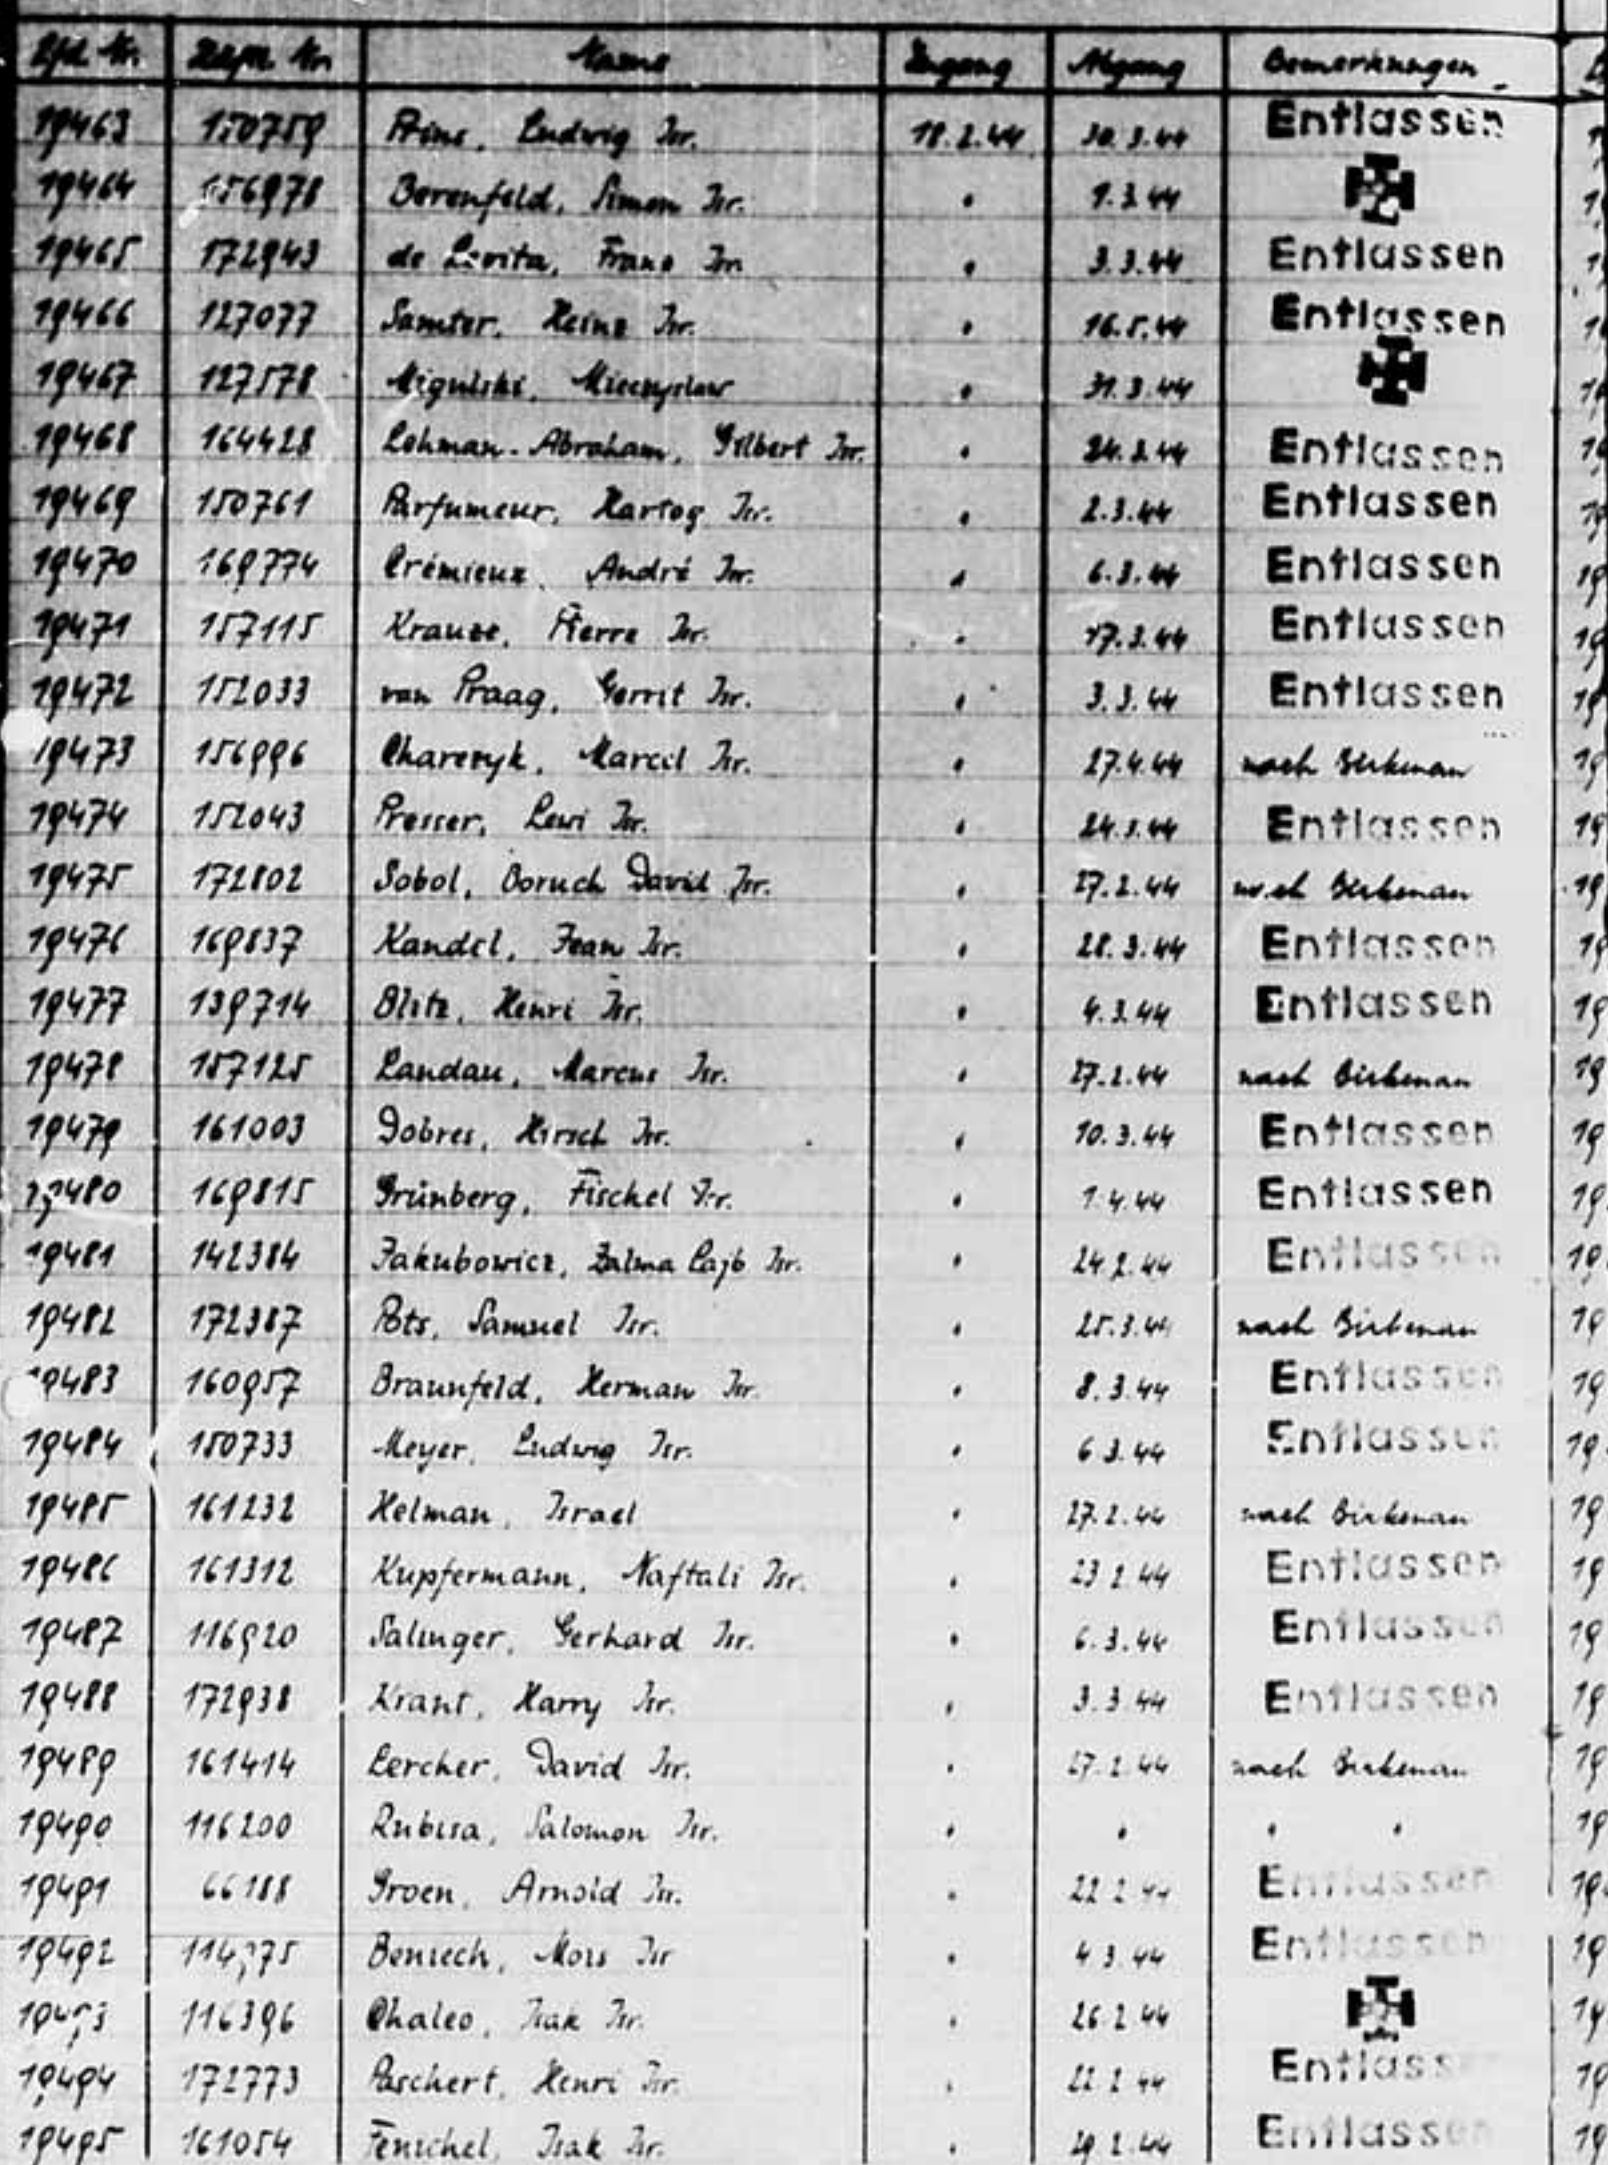 Lfd. Nr. Häftl. Nr. Name Zugang Abgang Bemerkungen
19463 150759 Prins, Ludwig Isr. 18.2.44 30.3.44 Entlassen
19464 156978 Berenfeld, Simon Isr. " 1.3.44
19465 172943 de Levita, Frans Isr. " 3.3.44 Entlassen
19466 127077 Samter, Heinz Isr. " 16.5.44 Entlassen
19467 127578 Migulski, Mieczyslaw " 31.3.44
19468 164428 Lehman-Abraham, Gilbert Isr. " 24.2.44 Entlassen
19469 150761 Parfumeur, Hartog Isr. " 2.3.44 Entlassen
19470 169774 Crémieux, André Isr. " 6.3.44 Entlassen
19471 157115 Krause, Pierre Isr. " 17.3.44 Entlassen
19472 152033 van Praag, Gerrit Isr. " 3.3.44 Entlassen
19473 156996 Charczyk, Marcel Isr. " 27.4.44 nach Birkenau
19474 152043 Presser, Lewi Isr. " 24.3.44 Entlassen
19475 172802 Sobol, Boruch David Isr. " 27.2.44 nach Birkenau
19476 169837 Kandel, Jean Isr. " 28.3.44 Entlassen
19477 139714 Blitz, Henri Isr. " 4.3.44 Entlassen
19478 157125 Landau, Marcus Isr. " 27.2.44 nach Birkenau
19479 161003 Dobres, Hirsch Isr. " 10.3.44 Entlassen
19480 169815 Grünberg, Fischel Isr. " 1.4.44 Entlassen
19481 142384 Jakubowicz, Zalma Lajb Isr. " 24.2.44 Entlassen
19482 172387 Pots, Samuel Isr. " 25.3.44 nach Birkenau
19483 160957 Braunfeld, Herman Isr. " 8.3.44 Entlassen
19484 150733 Meyer, Ludwig Isr. " 6.3.44 Entlassen
19485 161232 Helman, Israel " 27.2.44 nach Birkenau
19486 161312 Kupfermann, Naftali Isr. " 23.2.44 Entlassen
19487 116920 Salinger, Gerhard Isr. " 6.3.44 Entlassen
19488 172938 Krant, Harry Isr. " 3.3.44 Entlassen
19489 161414 Lercher, David Isr. " 27.2.44 nach Birkenau
19490 116200 Rubisa, Salomon Isr. " " " "
19491 66188 Groen, Arnold Isr. " 22.2.44 Entlassen
19492 Benrech, Mois Isr " 4.3.44 Entlassen
19493 116396 Chaleo, Isak Isr. " 26.2.44
19494 172773 Paschert, Henri Isr. " 22.2.44 Entlassen
19495 161054 Fenschel, Isak Isr. " 29.2.44 Entlassen